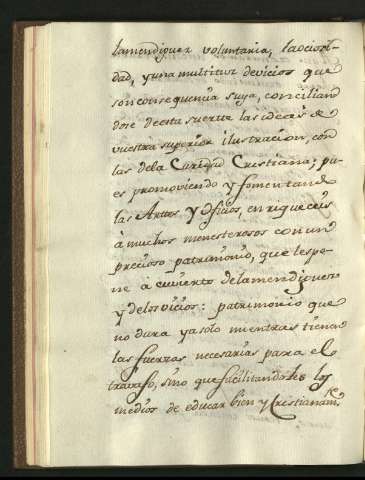 la mendiguez voluntaria, la ociosi-
dad, y una multitud de vicios que
son consequencia suya, conciliand
dose de esta suerte las ideas de
vuestra superior ilustracion, con
las de la Caridad Cristiana; pu-
es promoviendo y fomentando
las Artes y Oficios, enriqueceis
à muchos menesterosos con un
precioso patrimonio, que les po-
ne à cuvierto de la mendiguez
y de los vicios: patrimonio que
no dura ya solo mientras tienen
las fuerzas necesarias para el
travajo, sino que facilitandoles los
medios de educar bien y Cristianamte